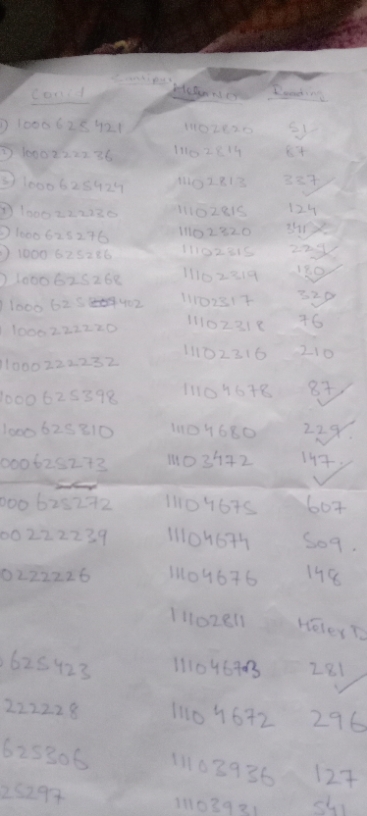 Conid Meter No Reading
1) 1000625421 11102820 51
2) 1000222236 11102814 87
3) 1000625424 11102813 337
1000222230 11102815 124
1000625276 11102320 341
1000625286 11102315 227
1000625268 11102319 180
1000625 402 11102317 320
1000222220 11102318 76
1000222232 11102316 210
1000625398 11104678 87
1000625310 11104680 229
000625273 11103472 147
000625272 11104675 607
00222239 11104674 509
0222226 11104676 148
11102811 Meter
625423 1110467 3 281
222228 11104672 296
625306 11103936 127
25297 11103931 541